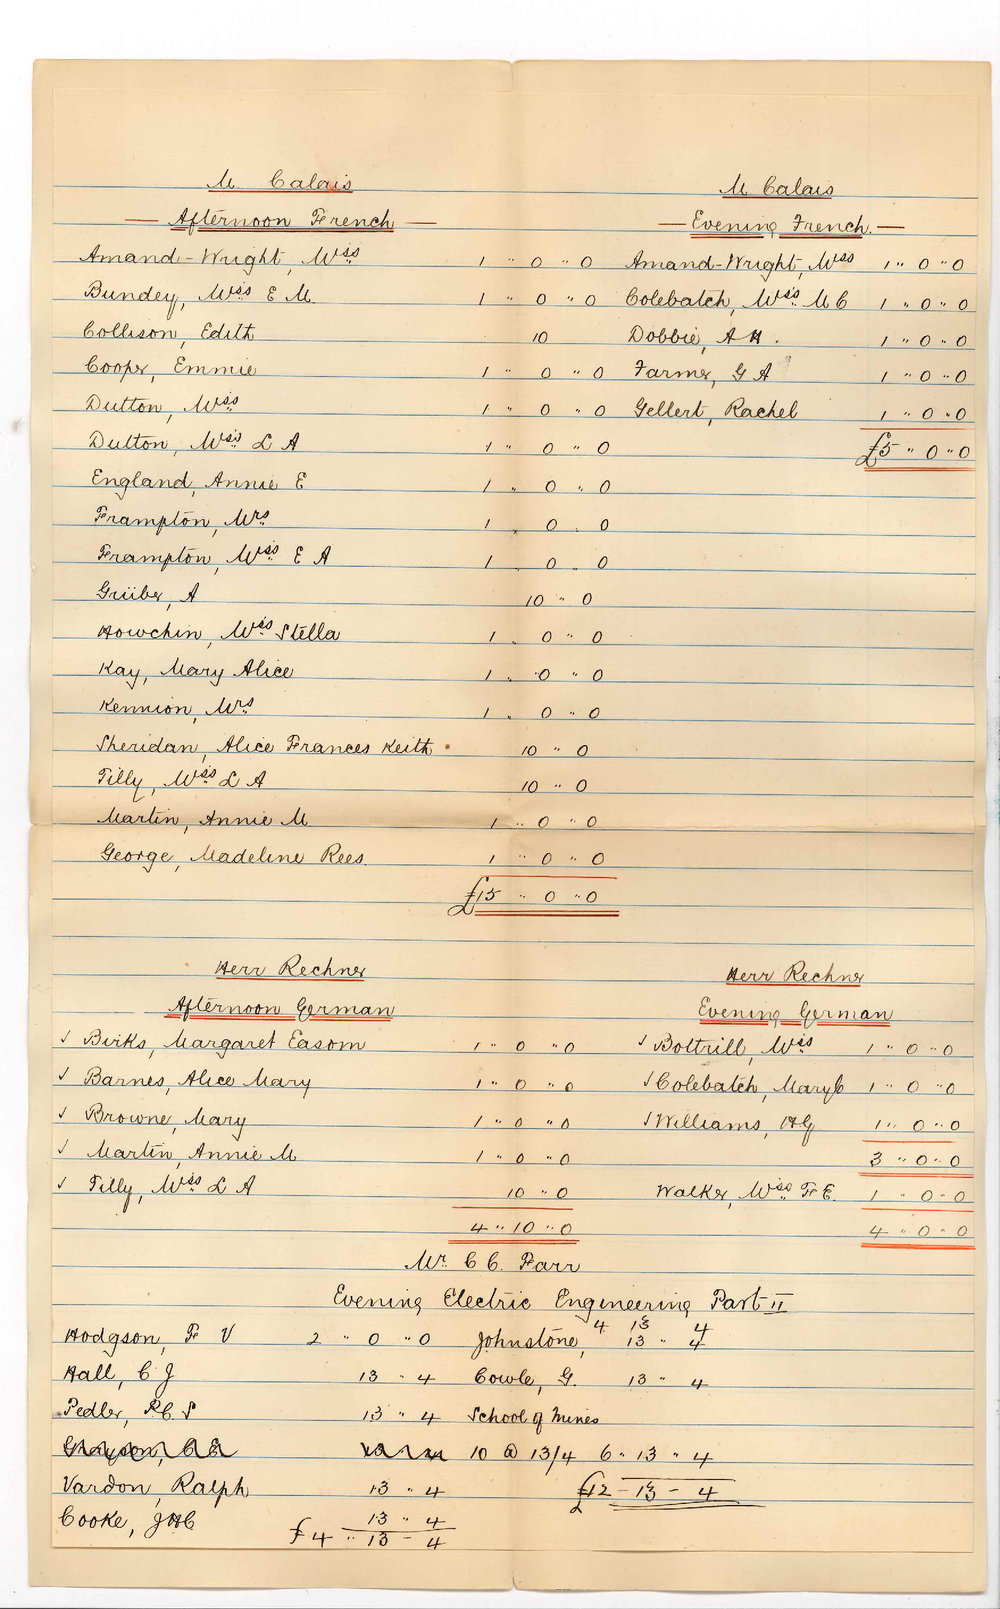 M. Calais
Afternoon French
Amand-Wright, Miss 1 " 0 " 0
Bundey, Miss E M. 1 " 0 " 0
Collison, Edith 10
Cooper, Emmie 1 " 0 " 0
Dutton, Miss 1 " 0 " 0
Dutton, Miss L A 1 " 0 " 0
England, Annie E 1 " 0 " 0
Frampton, Mrs 1 " 0 " 0
Frampton, Miss E A 1 " 0 " 0
Grüber, A 10 " 0
Howchin, Miss Stella 1 " 0 " 0
Kay, Mary Alice 1 " 0 " 0
Kennion, Mrs 1 " 0 " 0
Sheridan, Alice Frances Keith 10 " 0
Tilly, Miss L A 10 " 0
Martin, Annie M. 1 " 0 " 0
George, Madeline Rees. 1 " 0 " 0
£15 " 0 " 0
M Calais
Evening French.
Amand-Wright, Miss 1 " 0 " 0
Colebatch, Miss M C 1 " 0 " 0
Dobbie, A H. 1 " 0 " 0
Farmer, G A 1 " 0 " 0
Gellert, Rachel 1 " 0 " 0
£5 " 0 " 0
Herr Rechner
Afternoon German
✓ Birks, Margaret Easom 1 " 0 " 0
✓ Barnes, Alice Mary 1 " 0 " 0
✓ Browne, Mary 1 " 0 " 0
✓ Martin, Annie M 1 " 0 " 0
✓ Tilly, Miss L A 10 " 0
4 " 10 " 0
Herr Rechner
Evening German
✓ Bottrill, Miss 1 " 0 " 0
✓ Colebatch, Mary C 1 " 0 " 0
✓ Williams, H G 1 " 0 " 0
3 " 0 " 0
Walker, Miss F E. 1 " 0 " 0
4 " 0 " 0
Mr. C C. Farr
Evening Electric Engineering Part II
Hodgson, F V 2 " 0 " 0
Hall, C J 13 " 4
Pedler, R C S 13 " 4
Vardon, Ralph 13 " 4
Cooke, J H C 13 " 4
£4 " 13 - 4
4 13 4
Johnstone, 13 " 4
Cowle, G. 13 " 4
School of Mines
10 @ 13/4 6 " 13 " 4
£12 - 13 - 4